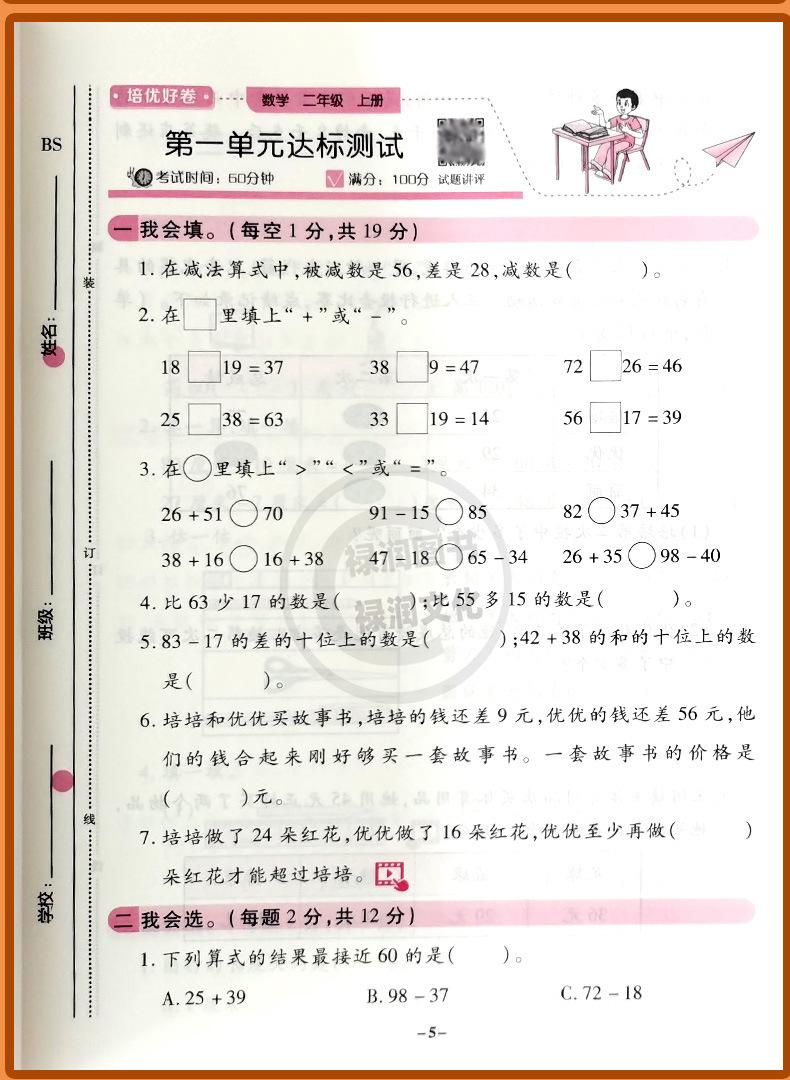 培优好卷
数学 二年级 上册
BS
第一单元达标测试
考试时间：60分钟 满分：100分 试题讲评
一 我会填。(每空 1 分,共 19 分)
1. 在减法算式中,被减数是 56,差是 28,减数是( )。
2. 在□里填上“+”或“-”。
18□19=37 38□9=47 72□26=46
25□38=63 33□19=14 56□17=39
3. 在○里填上“>”“<”或“=”。
26+51○70 91-15○85 82○37+45
38+16○16+38 47-18○65-34 26+35○98-40
4. 比 63 少 17 的数是( );比 55 多 15 的数是( )。
5. 83-17 的差的十位上的数是( );42+38 的和的十位上的数
是( )。
6. 培培和优优买故事书,培培的钱还差 9 元,优优的钱还差 56 元,他
们的钱合起来刚好够买一套故事书。一套故事书的价格是
( )元。
7. 培培做了 24 朵红花,优优做了 16 朵红花,优优至少再做( )
朵红花才能超过培培。
二 我会选。(每题 2 分,共 12 分)
1. 下列算式的结果最接近 60 的是( )。
A. 25+39 B. 98-37 C. 72-18
-5-
姓名：
班级：
学校：
装
订
线
禄润图书
禄润文化